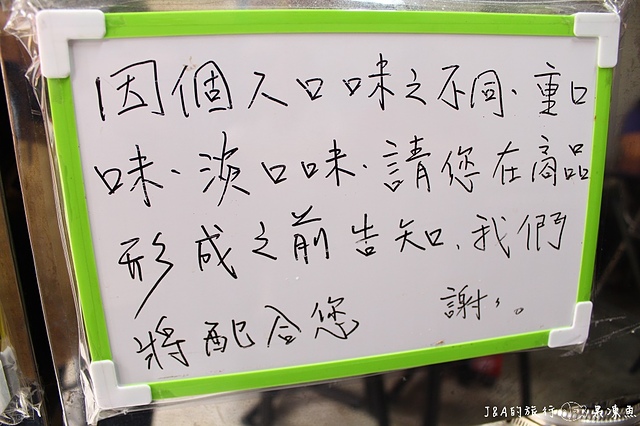 因個人口味之不同、重口
味、淡口味、請您在商品
形成之前告知、我們
將配合您 謝々。
J&A的旅行
吳凍魚